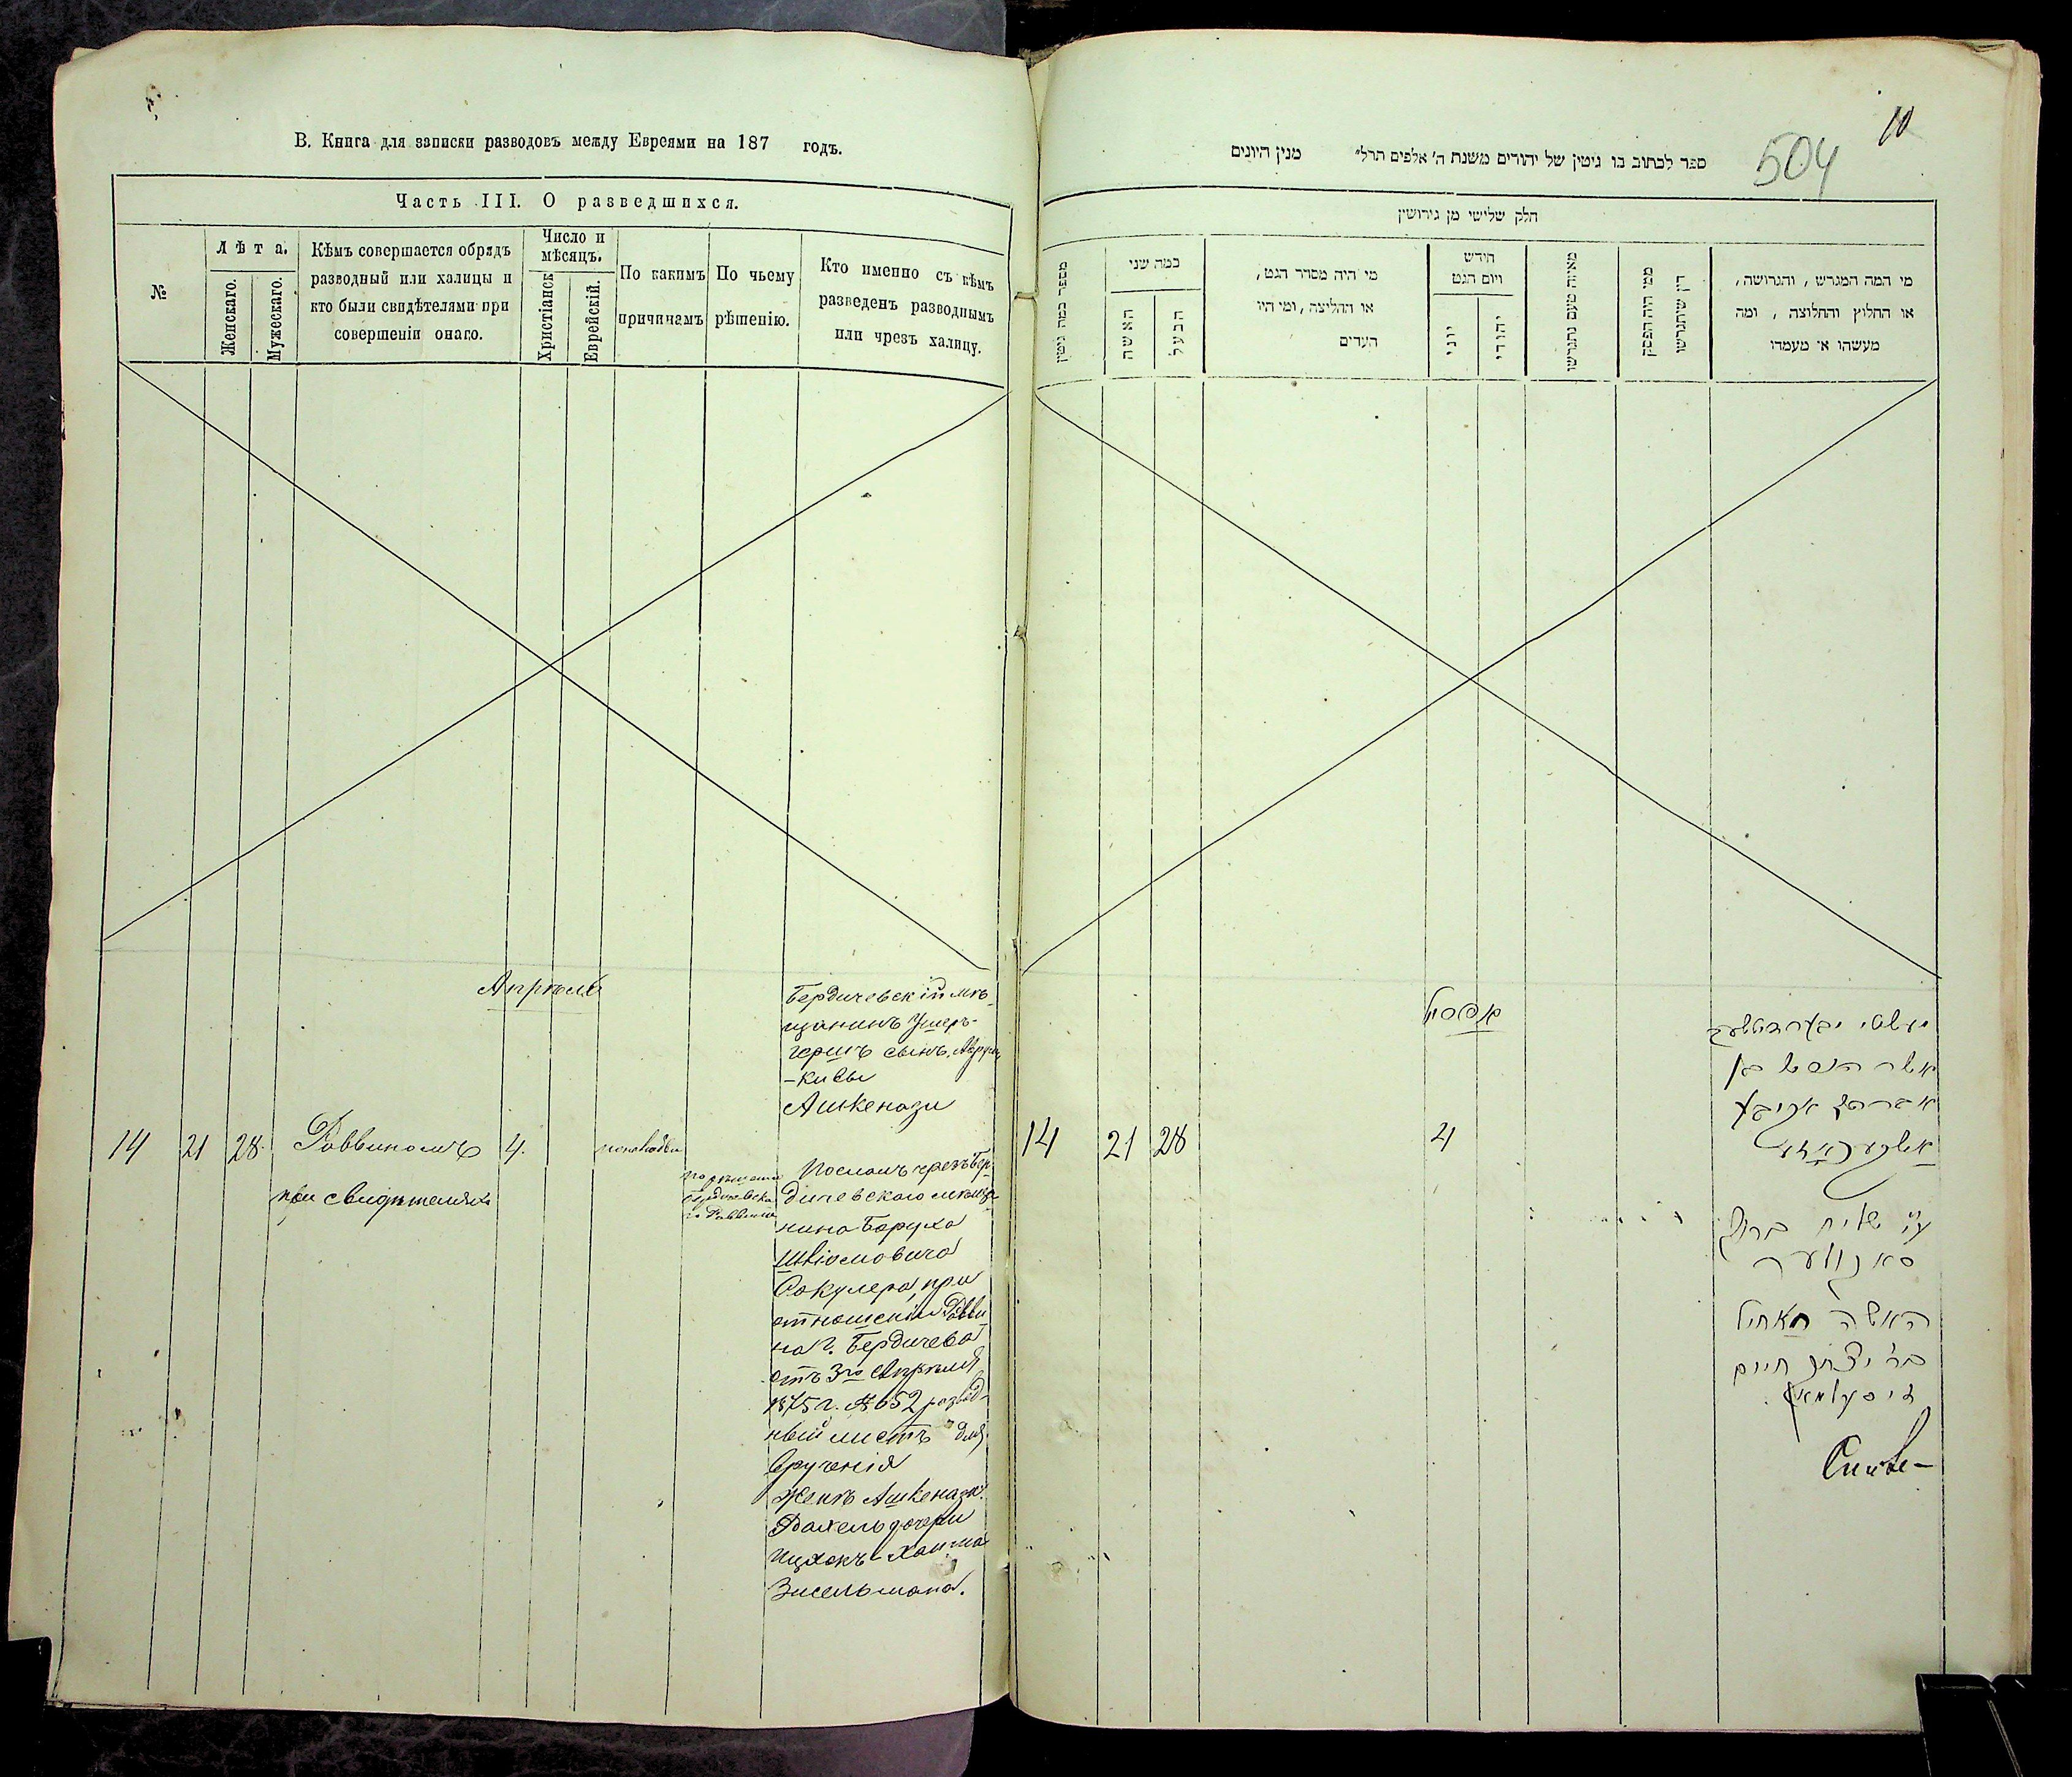 В. Книга для записки разводовъ между Евреями на 187 годъ.
Часть III. О разведшихся.
№
Лѣта.
Женскаго.
Мужескаго.
Кѣмъ совершается обрядъ
разводный или халицы и
кто были свидѣтелями при
совершеніи онаго.
Число и
мѣсяцъ.
Христіанскъ
Еврейскій.
По какимъ
причинамъ
По чьему
рѣшенію.
Кто именно съ кѣмъ
разведенъ разводнымъ
или чрезъ халицу.
Апрѣля
14 21 28 Раввиномъ 4.
при свидѣтеляхъ
по рѣшенію
Бердичевска
го Раввина
Бердичевскій мѣ-
щанинъ Ушеръ-
Гершъ сынъ
-Кивы
Ашкенази
Посломъ чрезъ Бер-
дичевскаго мѣща-
нина Боруха
Шліомовича
Сокулера, при
отношеніи Равви
на г. Бердичева
отъ 3го Апрѣля
1875 г. № 652 развод-
ный листъ для
врученія
Женѣ Ашкенази
Рахель дочери
Ицхокъ-Хаима
Зисельмана.
10
504
ספר לכתוב בו גיטין של יהודים משנת ה' אלפים תרל" מנין היונים
חלק שלישי מן גירושין
מספר כמה גיטין
כמה שני
האשה
הבעל
מי היה מסדר הגט,
או החליצה, ומי היו
העדים
חידש
ויום הגט
יוני
יהודי
מאיזה טעם נתגרשו
ממי היה הפסק
דין שיתגרשו
מי המה המגרש, והגרושה,
או החלוץ והחלוצה, ומה
מעשהו או מעמדו
אפריל
14 21 28 4
אשר הירש בן
אברהם עקיבא
אשכנאזי
ע"י שליח ברוך
סאקולער
האשה ראחיל
בר' יצחק חיים
זיסעלמאן